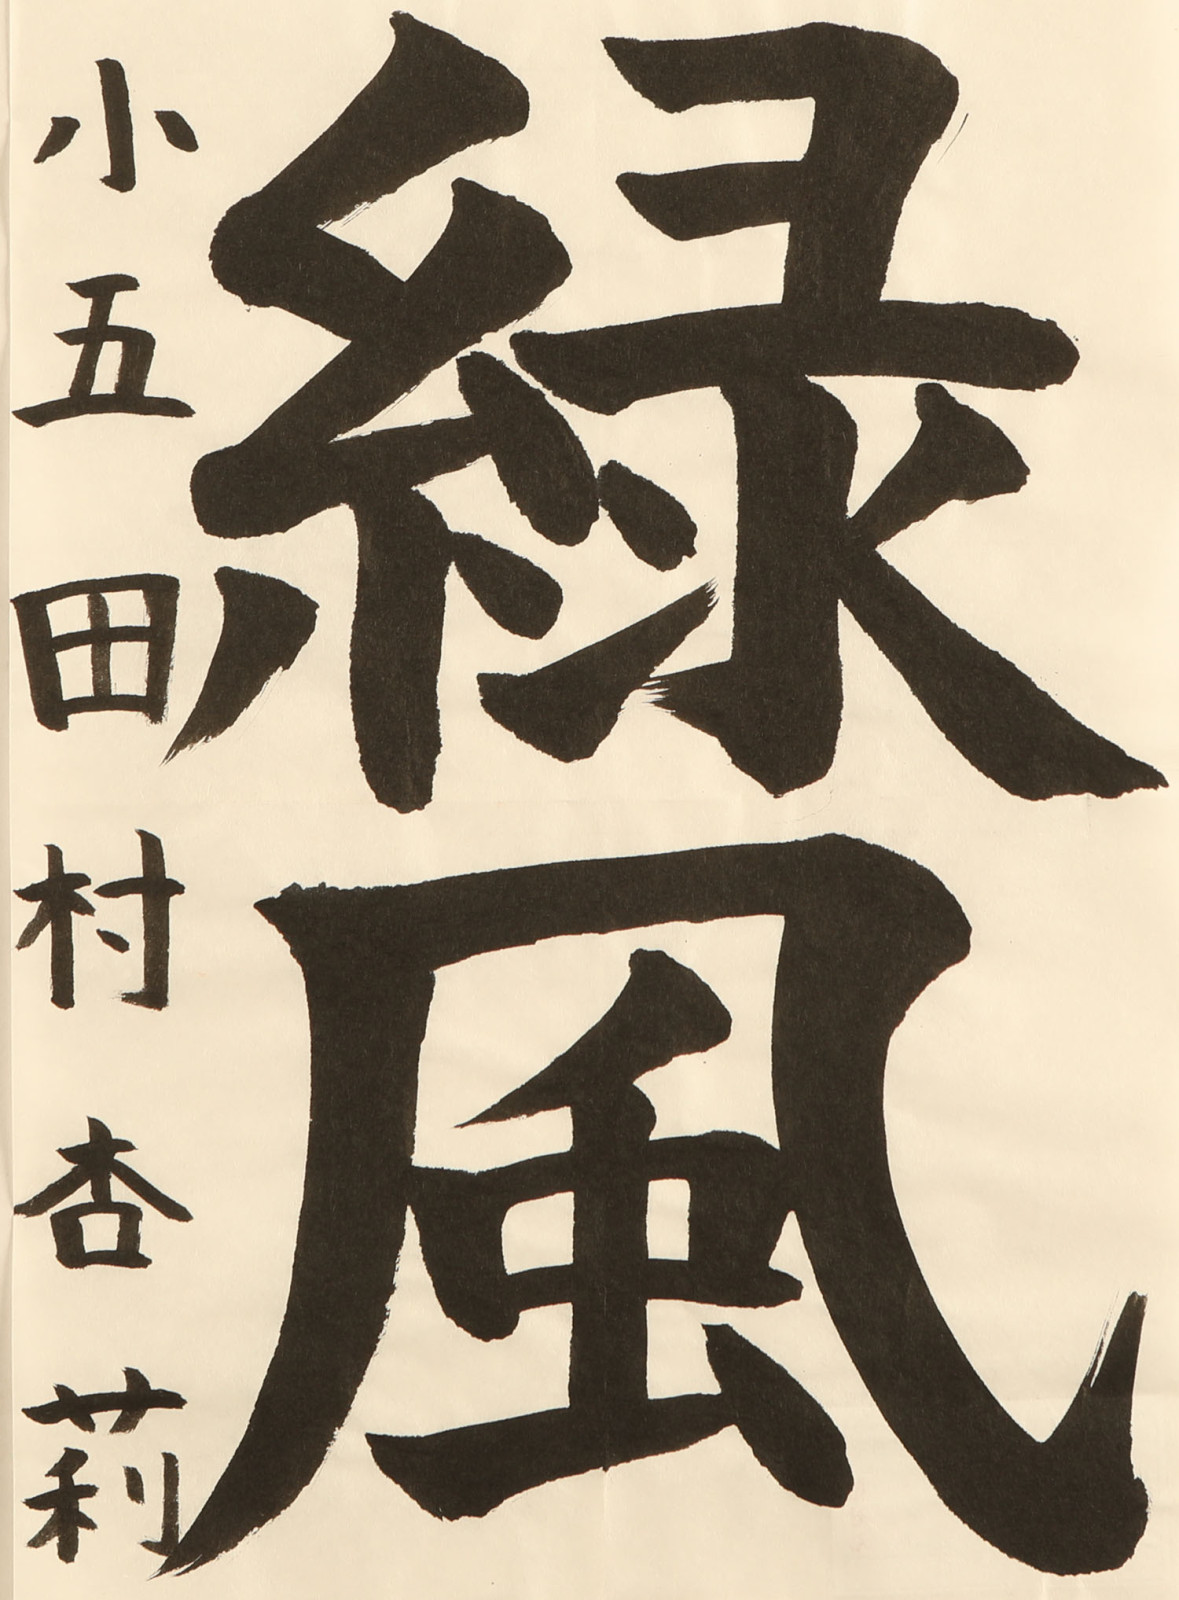 緑風
小五田村杏莉